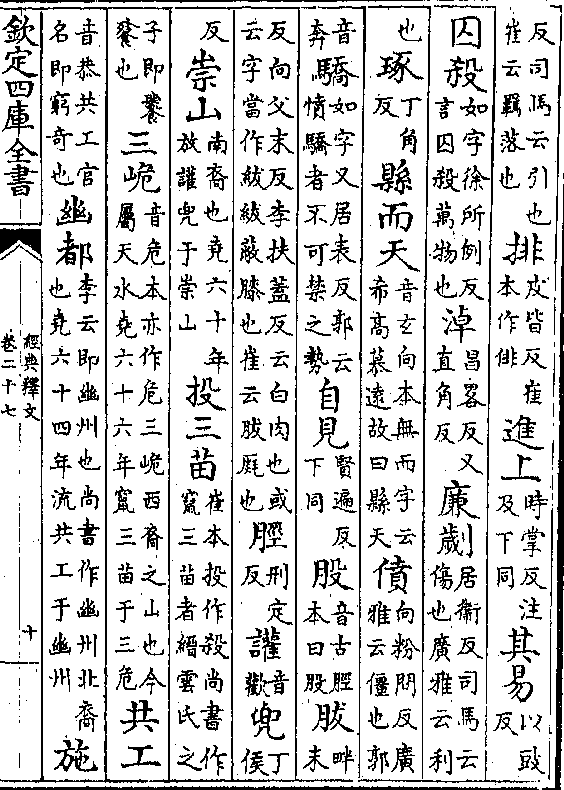 反司馬云引也崔云羈落也排皮皆反崔本作俳進上時掌反注及下同其易以豉反
囚殺如字徐所例反言囚殺萬物也淖昌畧反又直角反廉劌居衞反司馬云傷也廣雅云利
也琢丁角反縣而天音玄向本無而字云希高慕遠故曰縣天僨向粉問反廣雅云僵也郭
音奔驕如字又居表反郭云僨驕者不可禁之勢自見賢遍反下同股音古脛本曰股胈畔末
反向父末反李扶蓋反云白肉也或云字當作紱紱蔽膝也崔云胈也脛刑定反讙音歡兜丁侯
反崇山南裔也堯六十年放讙兜于崇山投三苗崔本投作殺尚書作竄三苗者縉雲氏之
子即饕餮也三峗音危本亦作危三峗西裔之山也今屬天水堯六十六年竄三苗于三危共工
音恭共工官名即窮奇也幽都李云即幽州也尚書作幽州北裔也堯六十四年流共工于幽州施
欽定四庫全書
經典釋文
卷二十七
十